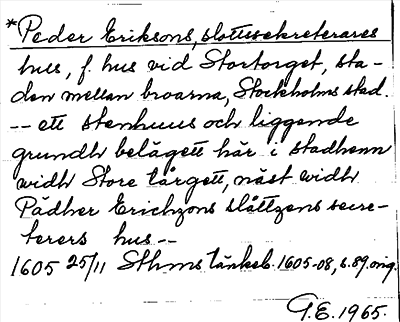 *Peder Eriksons, slottssekreterares
hus, f. hus vid Stortorget, sta-
den mellan broarna, Stockholms stad.
-- ett stenhuus och liggende
grundh belägett här i stadhenn
widh Store tårgett, näst widh
Pädher Erichzons slåttzens secre-
terers hus --
1605 25/11 Sthms tänkeb. 1605-08, s. 89. orig.
G.E. 1965.